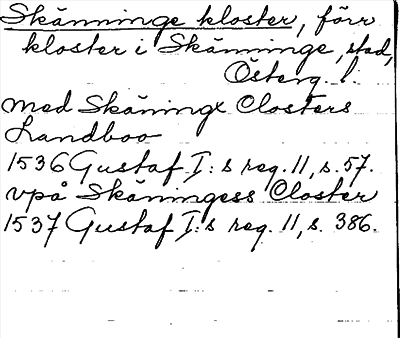 Skänninge kloster, förr
kloster i Skänninge, stad,
Österg. l.
med Skäninge Closters
Landboo
1536 Gustaf I:s reg. 11, s. 57.
vpå Skäningess Closter
1537 Gustaf I:s reg. 11, s. 386.